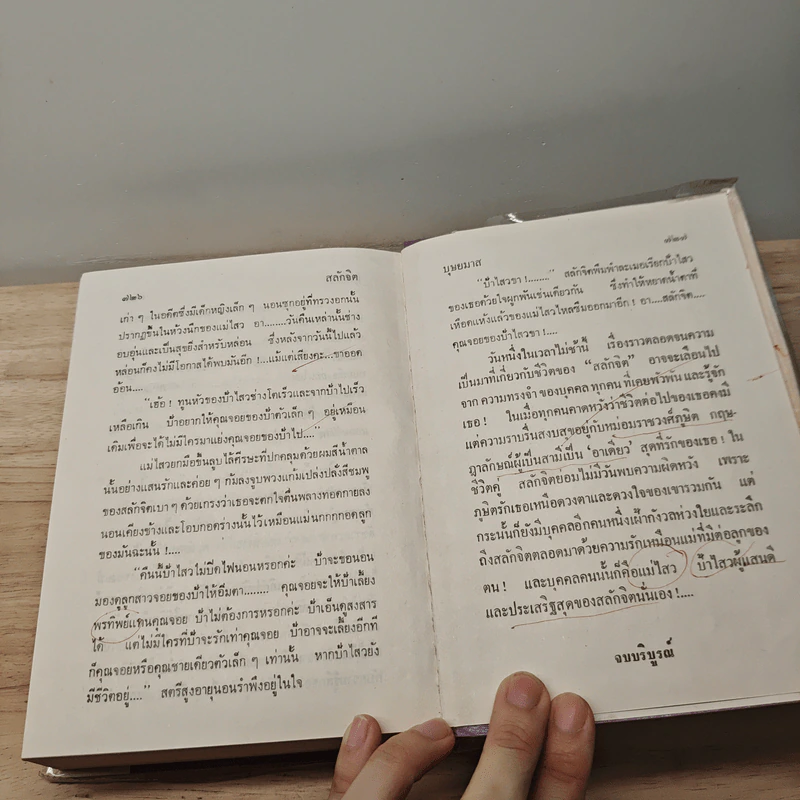 ๗๒๖
สลักจิต
เก่า ๆ ในอดีตซึ่งมีเด็กหญิงเล็ก ๆ นอนซุกอยู่ที่ทรวงอกนั้น
ปรากฏขึ้นในห้วงนึกของแม่ไสว อา........วันคืนเหล่านั้นช่าง
อบอุ่นและเป็นสุขยิ่งสำหรับหล่อน ซึ่งหลังจากวันนี้ไปแล้ว
หล่อนก็คงไม่มีโอกาสได้พบมันอีก !...แม้แต่เสียงคะ...ขาออด
อ้อน....
"เฮ้อ ! ทูนหัวของป้าไสวช่างโตเร็วและจากป้าไปเร็ว
เหลือเกิน ป้าอยากให้คุณจอยของป้าตัวเล็ก ๆ อยู่เหมือน
เดิมเพื่อจะได้ไม่มีใครมาแย่งคุณจอยของป้าไป...."
แม่ไสวยกมือขึ้นลูบไล้ศีรษะที่ปกคลุมด้วยผมสีน้ำตาล
นั้นอย่างแสนรักและค่อย ๆ ก้มลงจูบพวงแก้มเปล่งปลั่งสีชมพู
ของสลักจิตเบา ๆ ด้วยเกรงว่าเธอจะตกใจตื่นพลางทอดกายลง
นอนเคียงข้างและโอบกอดร่างนั้นไว้เหมือนแม่นกกกกอดลูก
ของมันฉะนั้น !....
"คืนนี้ป้าไสวไม่ปิดไฟนอนหรอกค่ะ ป้าจะขอนอน
มองดูลูกสาวจอยของป้าให้อิ่มตา........ คุณจอยจะให้ป้าเลี้ยง
พรทิพย์แทนคุณจอย ป้าไม่ต้องการหรอกค่ะ ป้าเอ็นดูสงสาร
ได้ แต่ไม่มีใครที่ป้าจะรักเท่าคุณจอย ป้าอาจจะเลี้ยงอีกที
ก็คุณจอยหรือคุณชายเดียวตัวเล็ก ๆ เท่านั้น หากป้าไสวยัง
มีชีวิตอยู่...." สตรีสูงอายุนอนรำพึงอยู่ในใจ
บุษยมาส
๗๒๗
"ป้าไสวขา !......." สลักจิตพึมพำละเมอเรียกป้าไสว
ของเธอด้วยใจผูกพันเช่นเดียวกัน ซึ่งทำให้หยาดน้ำตาที่
เหือดแห้งแล้วของแม่ไสวไหลซึมออกมาอีก ! อา....สลักจิต....
คุณจอยของป้าไสวขา !....
วันหนึ่งในเวลาไม่ช้านี้ เรื่องราวตลอดจนความ
เป็นมาที่เกี่ยวกับชีวิตของ "สลักจิต" อาจจะเลือนไป
จาก ความทรงจำ ของบุคคล ทุกคน ที่เคยพัวพัน และรู้จัก
เธอ ! ในเมื่อทุกคนคาดหวังว่าชีวิตต่อไปของเธอคงมี
แต่ความราบรื่นสงบสุขอยู่กับหม่อมราชวงศ์ภูษิต กฤษ-
ฎาลักษณ์ผู้เป็นสามีเป็น 'อาเดียว' สุดที่รักของเธอ ! ใน
ชีวิตคู่ สลักจิตย่อมไม่มีวันพบความผิดหวัง เพราะ
ภูษิตรักเธอเหนือดวงตาและดวงใจของเขารวมกัน แต่
กระนั้นก็ยังมีบุคคลอีกคนหนึ่งเฝ้ากังวลห่วงใยและระลึก
ถึงสลักจิตตลอดมาด้วยความรักเหมือนแม่ที่มีต่อลูกของ
ตน ! และบุคคลคนนั้นก็คือแม่ไสว ป้าไสวผู้แสนดี
และประเสริฐสุดของสลักจิตนั่นเอง !....
จบบริบูรณ์